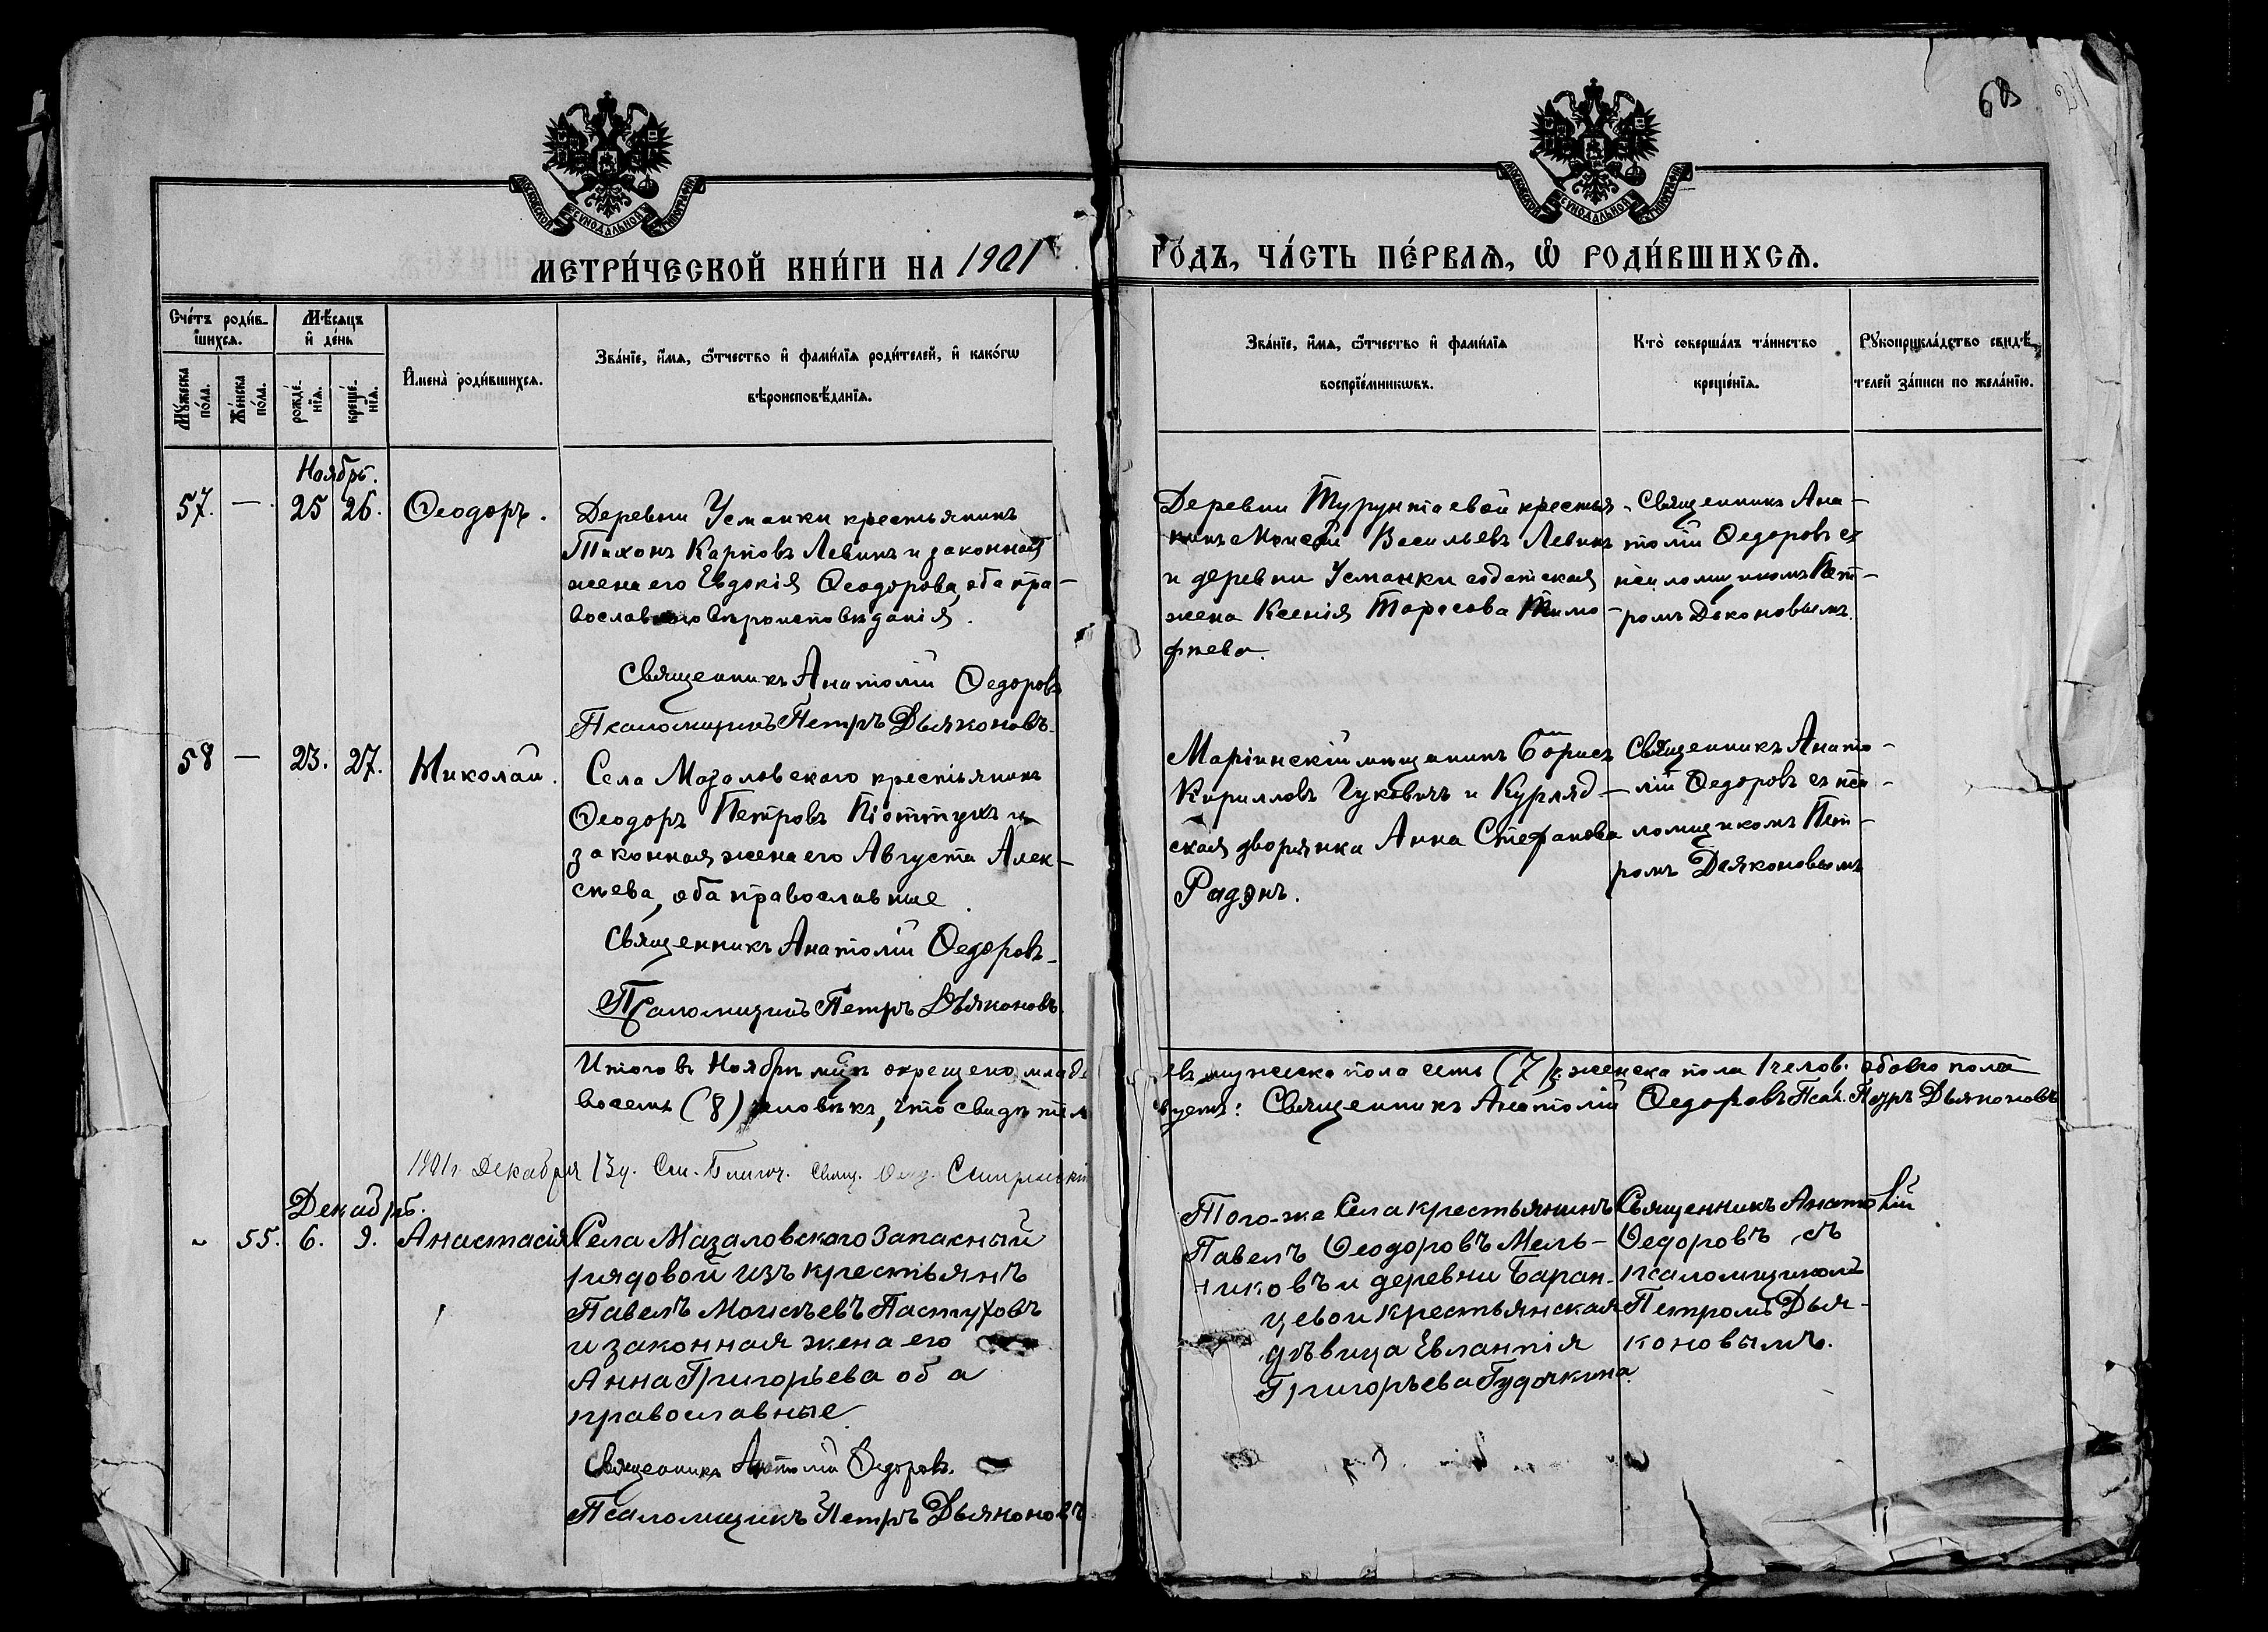 68
МОСКОВСКОЙ СѴНОДАЛЬНОЙ ТИПОГРАФІИ
МОСКОВСКОЙ СѴНОДАЛЬНОЙ ТИПОГРАФІИ
МЕТРИ́ЧЕСКОЙ КНИ́ГИ НА 1901
ГО́ДЪ, ЧА́СТЬ ПЕ́РВАѦ, Ѽ РОДИ́ВШИХСѦ.
Сче́тъ роди́в-
шихсѧ.
Мꙋ́жеска по́ла.
Же́нска по́ла.
Мѣ́сѧцъ
и҆ де́нь
рожде́-
нїѧ.
креще́-
нїѧ.
И҆мена̀ роди́вшихсѧ.
Зва́нїе, и҆́мѧ, ѻ҆́тчество и҆ фами́лїѧ роди́телей, и҆ како́гѡ
вѣроисповѣ́данїѧ.
Зва́нїе, и҆́мѧ, ѻ҆́тчество и҆ фами́лїѧ
воспрїе́мникѡвъ.
Кто̀ соверша́лъ та́инство
креще́нїѧ.
Рꙋкоприкла́дство свидѣ́-
телей за́писи по жела́нїю.
Ноябрь.
57. — 25 26. Ѳеодоръ.
Деревни Усманки крестьянинъ
Тихонъ Карповъ Левинъ и законная
жена его Евдокія Ѳеодорова, оба пра-
вославного вѣроисповѣданія.
Священникъ Анатолій Ѳедоровъ
Псаломщикъ Петръ Дьяконовъ.
Деревни Турунтаевой крестья-
нинъ Моисей Васильевъ Левинъ
и деревни Усманки солдатская
жена Ксенія Тарасова Тимо-
фнева.
Священникъ Ана-
толій Ѳедоровъ съ
псаломщикомъ Пет-
ромъ Дьконовымъ.
58 — 23. 27. Николай.
Села Мазаловского крестьянинъ
Ѳеодоръ Петровъ Піоттухъ и
законная жена его Августа Алек-
сѣева, оба православные
Священникъ Анатолій Ѳедоровъ
Псаломщикъ Петръ Дьяконовъ.
Маріинскій мѣщанинъ Борисъ
Кирилловъ Гуковичъ и Курляд-
ская дворянка Анна Стефанова
Радэнъ.
Священникъ Анато-
лій Ѳедоровъ съ пса-
ломщикомъ Пет-
ромъ Дьяконовымъ
Итого въ Ноябрѣ м̃цѣ окрещено младе
въ мужска пола семь (7), женска пола 1 челов. обоего пола
восемь (8) человѣкъ, что свидѣтел
вуетъ: Священникъ Анатолій Ѳедоровъ Пса. Петръ Дьяконовъ
1901 г. Декабря 13 д. Благоч. Свящ.
Декабрь.
55. 6. 9. Анастасія
Села Мазаловского запасный
рядовой изъ крестьянъ
Павелъ Моисѣевъ Пастуховъ
и законная жена его
Анна Григорьева оба
православные
Священникъ Анатолій Ѳедоровъ.
Псаломщикъ Петръ Дьяконовъ
Того-же села крестьянинъ
Павелъ Ѳеодоровъ Мель-
никовъ и деревни Баран-
цевой крестьянская
дѣвица Евлампія
Григорьева Гудочкина.
Священникъ Анатолій
Ѳедоровъ съ
псаломщикомъ
Петромъ Дья-
коновымъ.